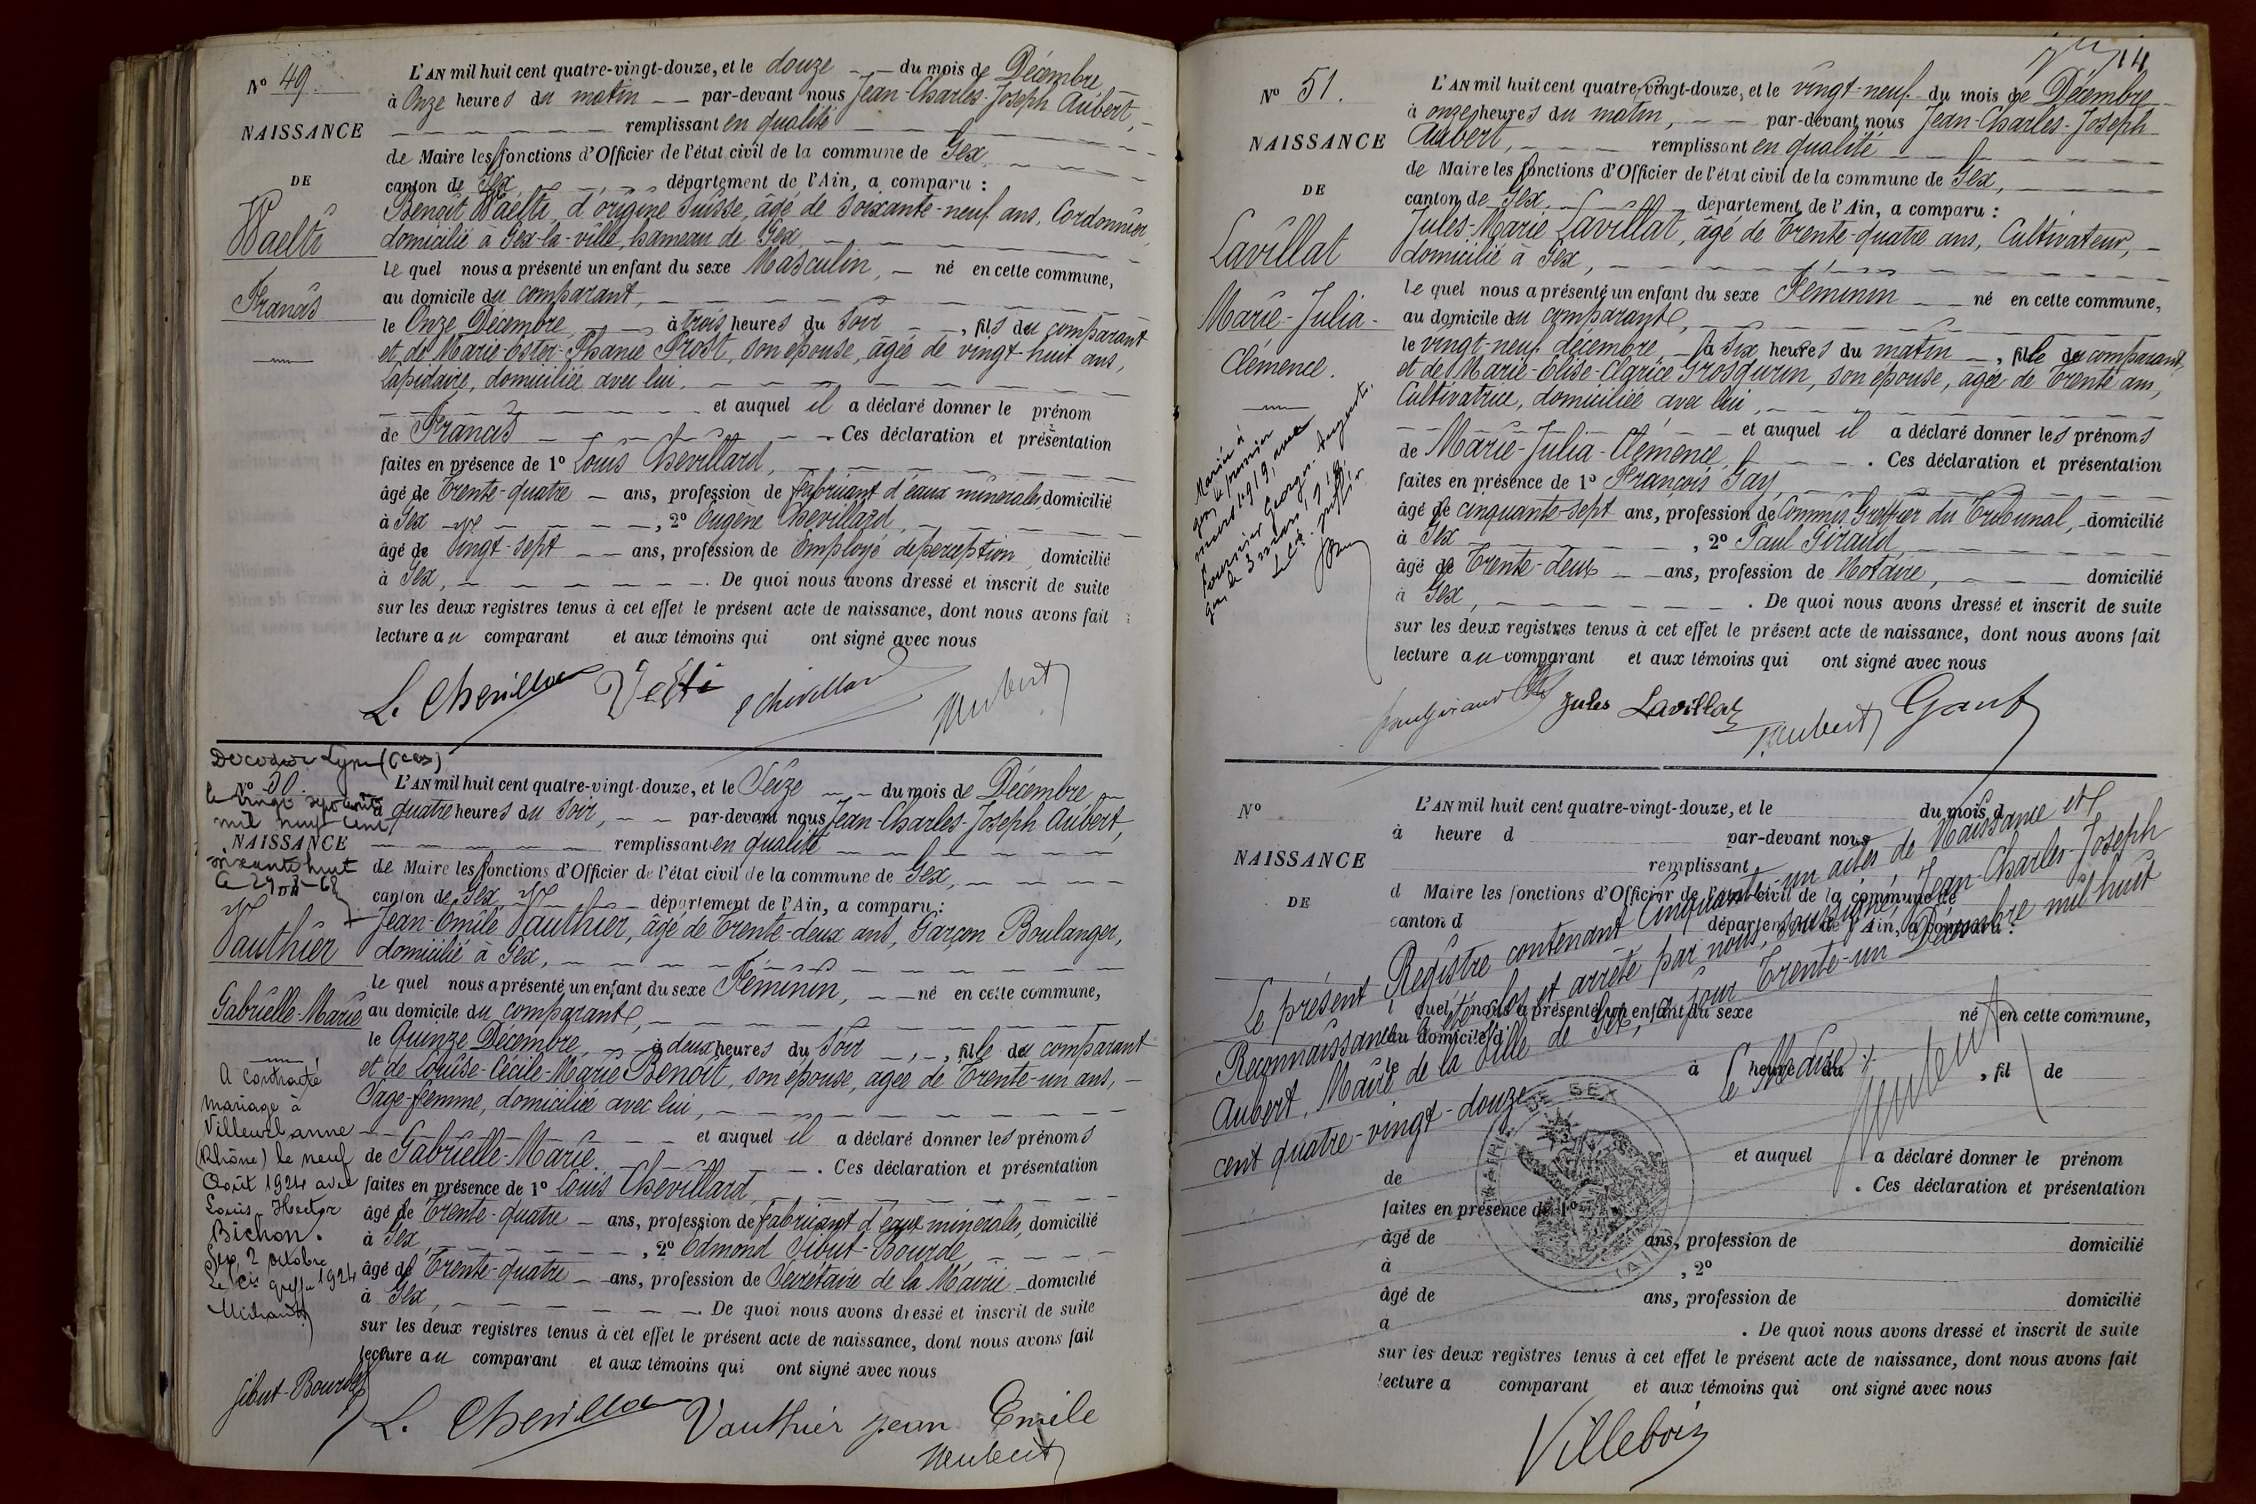 Nº 49.
NAISSANCE
DE
Waelti
Francis
L'AN mil huit cent quatre-vingt-douze, et le douze du mois de Décembre
à Onze heures du matin par-devant nous Jean-Charles-Joseph Aubert,
remplissant en qualité
de Maire les fonctions d'Officier de l'état civil de la commune de Gex
canton de Gex département de l'Ain, a comparu :
Benoît Waelti, d'origine Suisse, âgé de soixante-neuf ans, Cordonnier,
domicilié à Gex-la-ville, hameau de Gex
le quel nous a présenté un enfant du sexe Masculin, né en cette commune,
au domicile du comparant,
le Onze Décembre à trois heures du soir, fils du comparant
et de Marie-Ester-Phanie Prost, son épouse, âgée de vingt-huit ans,
Lapidaire, domiciliée avec lui.
et auquel il a déclaré donner le prénom
de Francis. Ces déclaration et présentation
faites en présence de 1º Louis Chevillard,
âgé de Trente-quatre ans, profession de fabricant d'eaux minérales, domicilié
à Gex, 2º Eugène Chevillard,
âgé de Vingt-sept ans, profession de Employé de perception, domicilié
à Gex,. De quoi nous avons dressé et inscrit de suite
sur les deux registres tenus à cet effet le présent acte de naissance, dont nous avons fait
lecture au comparant et aux témoins qui ont signé avec nous
L. Chevillard Velti E Chevillard Aubert
Nº 50.
le vingt sept août
mil neuf cent
NAISSANCE
soixante huit
Vauthier
Gabrielle-Marie
A contracté
mariage à
Villeurbanne
(Rhône) le neuf
Août 1924 avec
Louis-Hector
Bichon.
Gex, 2 octobre
1924
L'AN mil huit cent quatre-vingt-douze, et le Seize du mois de Décembre
à quatre heures du soir, par-devant nous Jean-Charles-Joseph Aubert,
remplissant en qualité
de Maire les fonctions d'Officier de l'état civil de la commune de Gex,
canton de Gex département de l'Ain, a comparu :
Jean-Emile Vauthier, âgé de Trente-deux ans, Garçon Boulanger,
domicilié à Gex,
le quel nous a présenté un enfant du sexe Féminin, né en cette commune,
au domicile du comparant,
le Quinze Décembre à deux heures du soir, fille du comparant
et de Louise-Cécile-Marie Benoît, son épouse, âgée de Trente-un ans,
Sage-femme, domiciliée avec lui,
et auquel il a déclaré donner les prénoms
de Gabrielle-Marie. Ces déclaration et présentation
faites en présence de 1º Louis Chevillard,
âgé de Trente-quatre ans, profession de fabricant d'eaux minérales, domicilié
à Gex, 2º Edmond Sibut-Bourde,
âgé de Trente-quatre ans, profession de Secrétaire de la Mairie domicilié
à Gex,. De quoi nous avons dressé et inscrit de suite
sur les deux registres tenus à cet effet le présent acte de naissance, dont nous avons fait
lecture au comparant et aux témoins qui ont signé avec nous
Sibut-Bourde L. Chevillard Vauthier jean Emile
Aubert
Nº 51.
NAISSANCE
DE
Lavillat
Marie-Julia-
Clémence.
Mariée à
Gex, le premier
mars 1919, avec
Fournier Georges-Auguste
L'AN mil huit cent quatre-vingt-douze, et le vingt-neuf du mois de Décembre
à onze heures du matin, par-devant nous Jean-Charles-Joseph
Aubert, remplissant en qualité
de Maire les fonctions d'Officier de l'état civil de la commune de Gex,
canton de Gex, département de l'Ain, a comparu :
Jules-Marie Lavillat, âgé de Trente-quatre ans, Cultivateur,
domicilié à Gex,
le quel nous a présenté un enfant du sexe Féminin né en cette commune,
au domicile du comparant,
le vingt-neuf décembre, à six heures du matin, fille du comparant,
et de Marie-Elise-Clarice Grosgurin, son épouse, âgée de Trente ans,
Cultivatrice, domiciliée avec lui,
et auquel il a déclaré donner les prénoms
de Marie-Julia-Clémence. Ces déclaration et présentation
faites en présence de 1º François Gay,
âgé de cinquante-sept ans, profession de Commis Greffier du Tribunal, domicilié
à Gex, 2º Paul Giraud,
âgé de Trente-deux ans, profession de Notaire, domicilié
à Gex,. De quoi nous avons dressé et inscrit de suite
sur les deux registres tenus à cet effet le présent acte de naissance, dont nous avons fait
lecture au comparant et aux témoins qui ont signé avec nous
Paul Giraud Jules Lavillat Aubert Gay
Nº
NAISSANCE
DE
L'AN mil huit cent quatre-vingt-douze, et le du mois d
à heure d par-devant nous
remplissant
d Maire les fonctions d'Officier de l'état civil de la commune de
canton d département de l'Ain, a comparu :
l quel nous a présenté un enfant du sexe né en cette commune,
au domicile d
le à heure du , fil de
et auquel a déclaré donner le prénom
de . Ces déclaration et présentation
faites en présence de 1º
âgé de ans, profession de domicilié
à , 2º
âgé de ans, profession de domicilié
à . De quoi nous avons dressé et inscrit de suite
sur les deux registres tenus à cet effet le présent acte de naissance, dont nous avons fait
lecture a comparant et aux témoins qui ont signé avec nous
Le présent Registre contenant Cinquante-un actes de Naissance et
Reconnaissance a été clos et arrêté par nous, soussigné, Jean-Charles-Joseph
Aubert, Maire de la Ville de Gex, ce jour Trente-un Décembre mil huit
cent quatre-vingt-douze
Le Maire
Aubert
MAIRIE DE GEX
(AIN)
Villebois